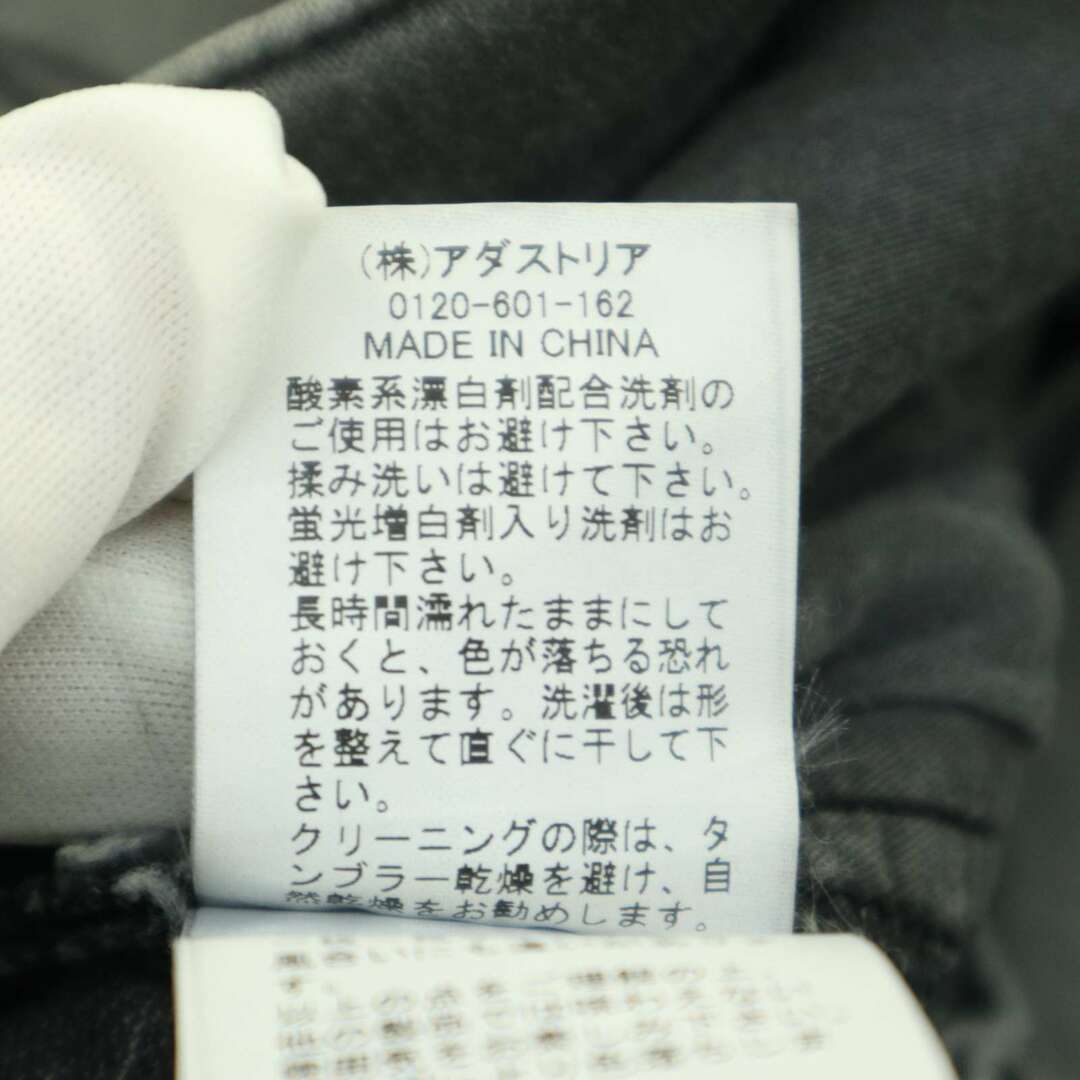 (株)アダストリア
0120-601-162
MADE IN CHINA
酸素系漂白剤配合洗剤の
ご使用はお避け下さい。
揉み洗いは避けて下さい。
蛍光増白剤入り洗剤はお
避け下さい。
長時間濡れたままにして
おくと、色が落ちる恐れ
があります。洗濯後は形
を整えて直ぐに干して下
さい。
クリーニングの際は、タ
ンブラー乾燥を避け、自
然乾燥をお勧めします。